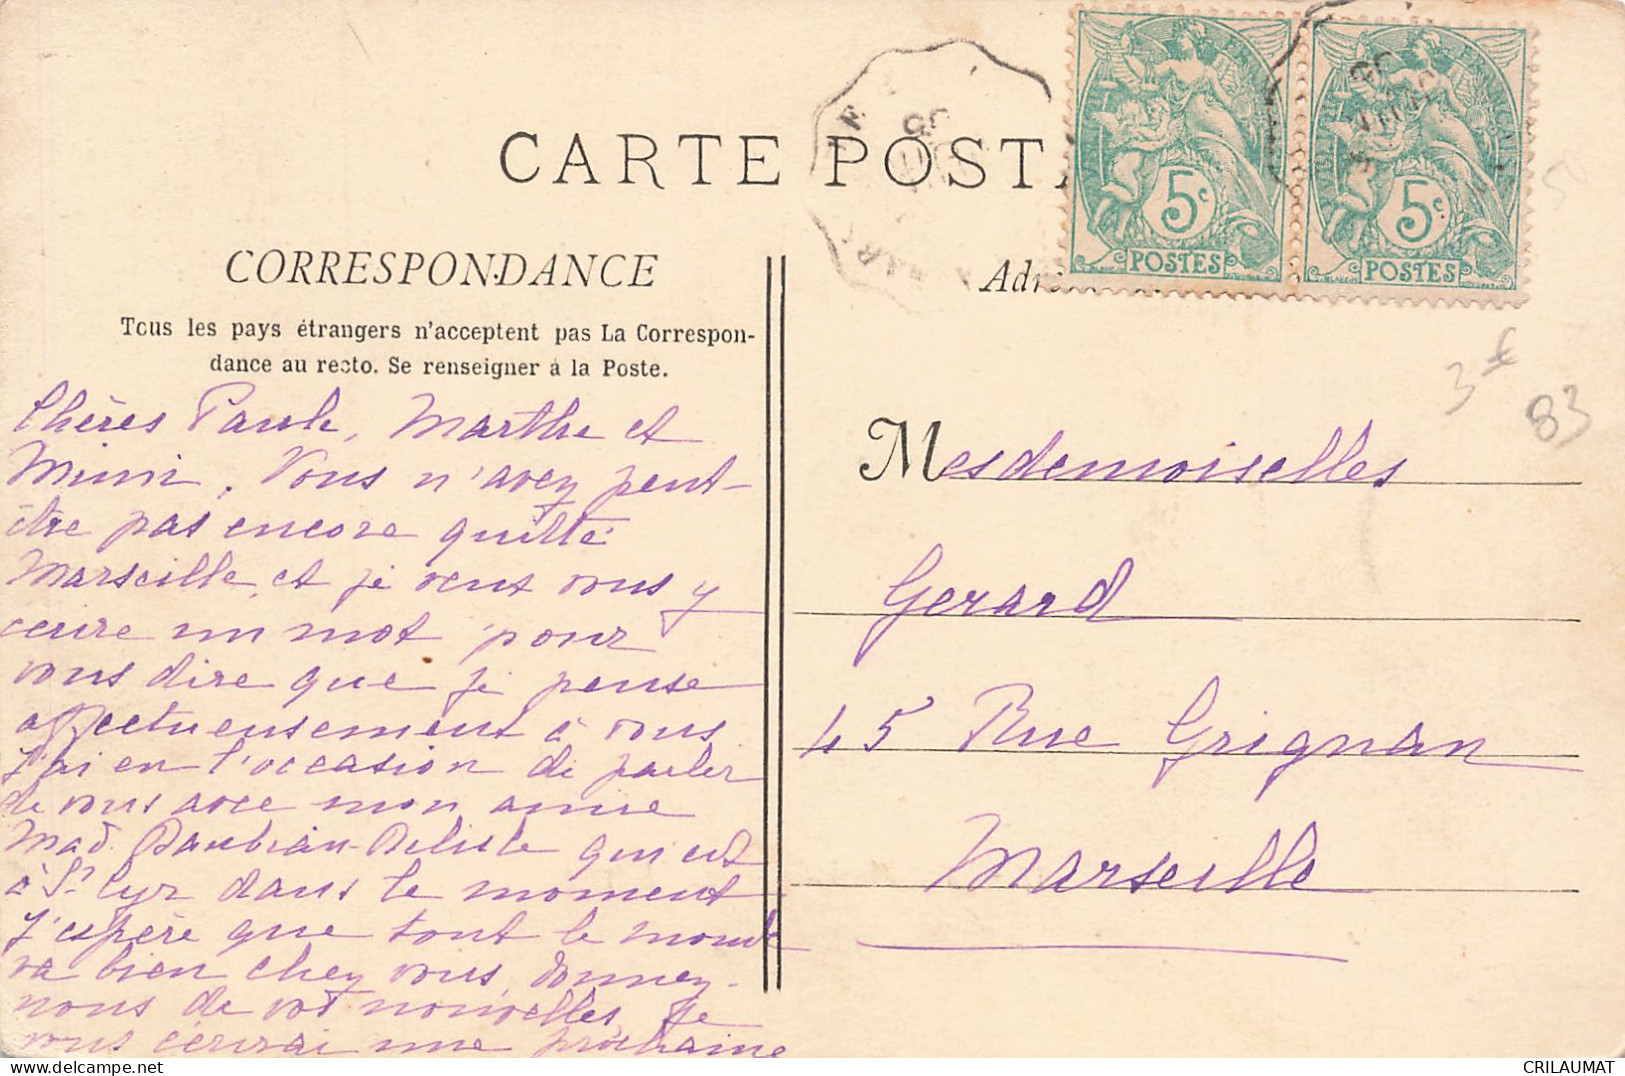 CARTE POSTA
CORRESPONDANCE
Tous les pays étrangers n'acceptent pas La Correspon-
dance au recto. Se renseigner à la Poste.
Chères Paule, Marthe et
Mimi, Vous n'avez peut-
être pas encore quitté
Marseille, et je veux vous y
écrire un mot pour
vous dire que je pense
affectueusement à vous
J'ai eu l'occasion de parler
de vous avec mon amie
Mad. qui est
à St Cyr dans le moment
J'espère que tout le monde
va bien chez vous, donnez-
nous de vos nouvelles, Je
vous écrirai une prochaine
REPUBLIQUE FRANÇAISE
5c
POSTES
REPUBLIQUE FRANÇAISE
5c
POSTES
Adr
3€
83
Mesdemoiselles
Gérard
45 Rue Grignan
Marseille
www.delcampe.net
CRILAUMAT